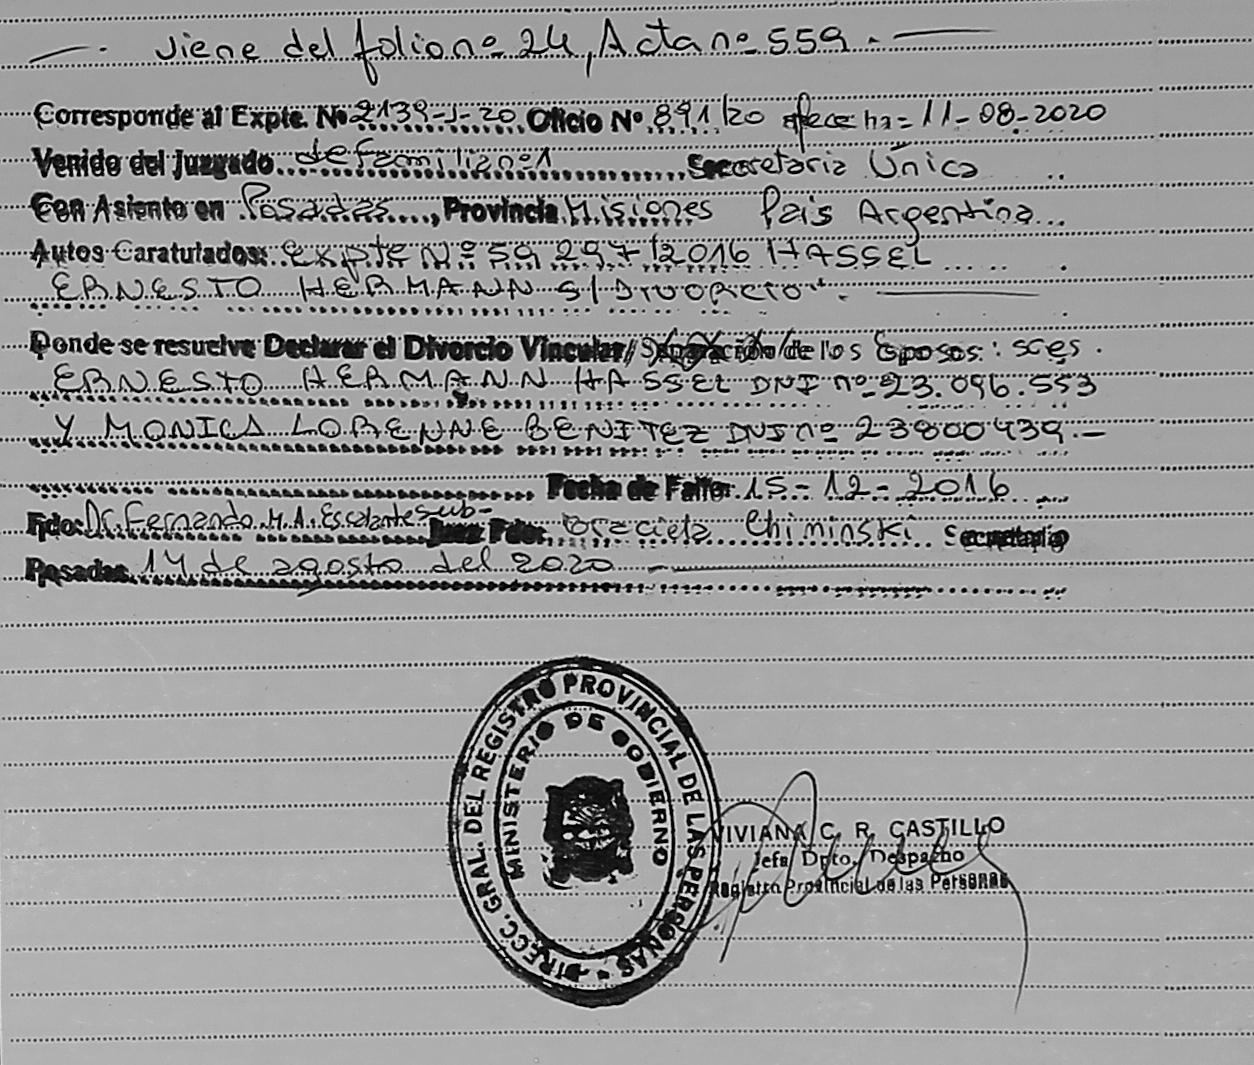 viene del folio nº 24, Acta nº 559.
Corresponde al Expte. Nº 2139-J-20 Oficio Nº 891/20 fecha= 11-08-2020
Venido del Juzgado de familia nº1 Secretaria Única
Con Asiento en Posadas, Provincia Misiones Pais Argentina
Autos Caratulados: expte Nº 59297/2016 HASSEL
ERNESTO HERMANN S/ DIVORCIO".
Donde se resuelve Declarar el Divorcio Vincular/ Separación/ de los Esposos: sres.
ERNESTO HERMANN HASSEL DNI nº 23.096.553
Y MONICA LORENNE BENITEZ DNI nº 23800439.-
Fecha de Fallo: 15-12-2016
Fdo: Dr. Fernando M.A. Escalante Sub-
Juez Fdo. Graciela Chiminski Secretario
Posadas 14 de agosto del 2020
DIRECC. GRAL. DEL REGISTRO PROVINCIAL DE LAS PERSONAS
MINISTERIO DE GOBIERNO
VIVIANA C. R. CASTILLO
Jefa Dpto. Despacho
Registro Provincial de las Personas